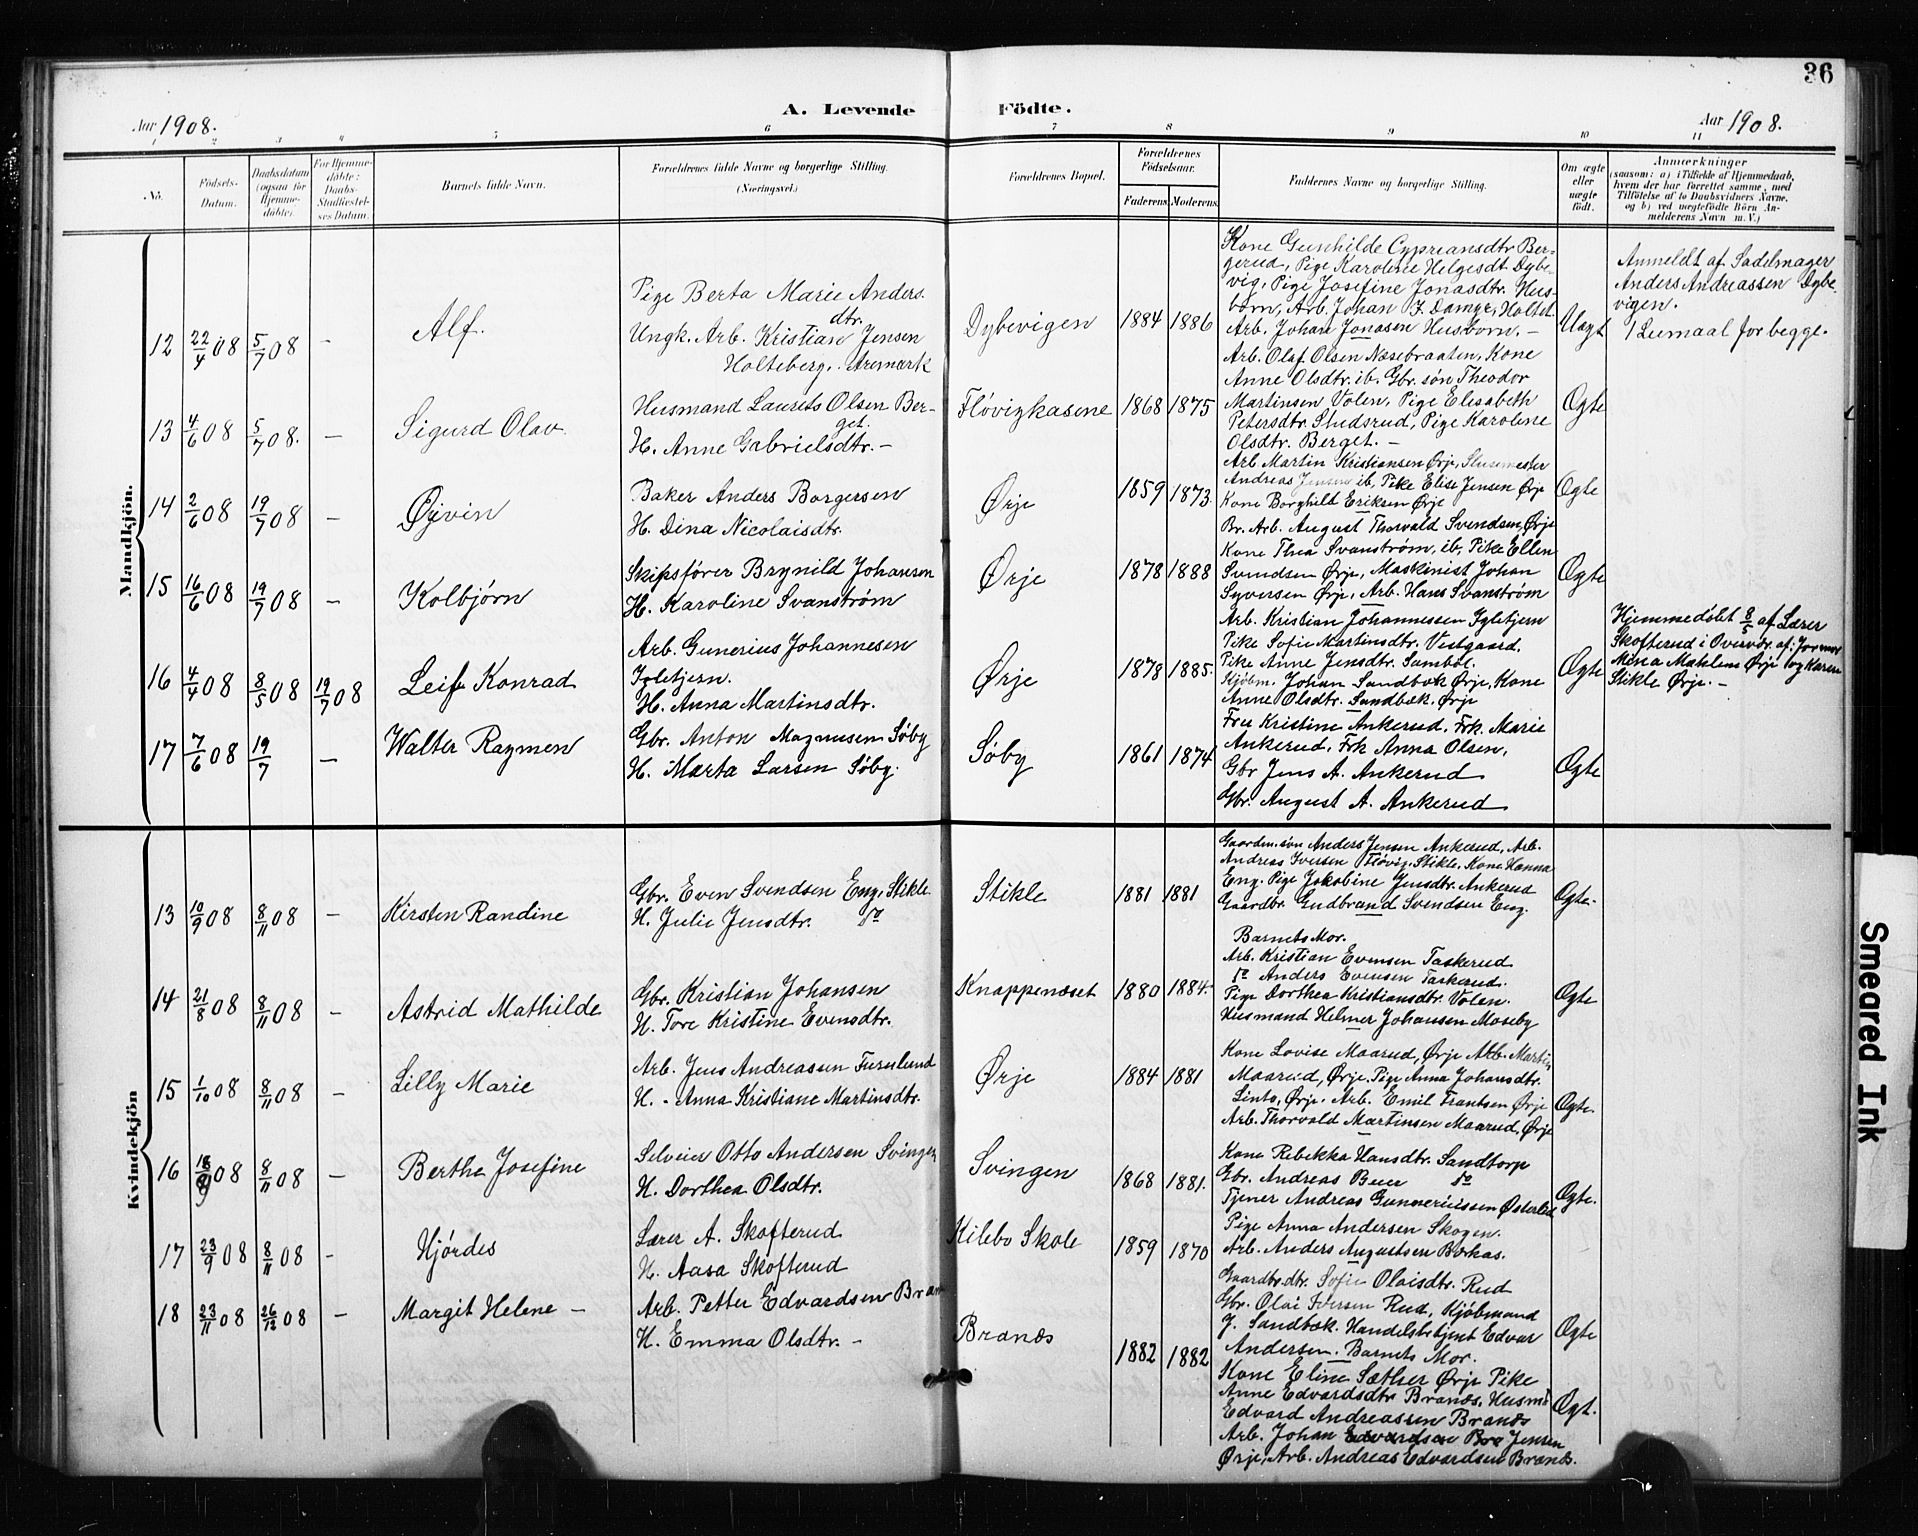 36
A. Levende Födte.
Aar 1908.
Aar 1908.
1 2 3 4 5 6 7 8 9 10 11
No.
Födsels-
Datum.
Daabsdatum
(ogsaa for
Hjemme-
döbte).
For Hjemme-
döbte:
Daabs-
Stadfæstel-
ses Datum.
Barnets fulde Navn.
Forældrenes fulde Navne og borgerlige Stilling.
(Næringsvei.)
Forældrenes Bopæl.
Forældrenes
Födselsaar.
Faderens. Moderens.
Faddernes Navne og borgerlige Stilling.
Om ægte
eller
uægte
födt.
Anmærkninger
(saasom: a) i Tilfælde af Hjemmedaab,
hvem der har forrettet samme, med
Tilföielse af to Daabsvidners Navne,
og b) ved uægtefödte Börn An-
melderens Navn m. V.)
Mandkjön.
12 22/4 08 5/7 08 – Alf.
Pige Berta Marie Anders.
dtr.
Ungk. Arb. Kristian Jensen
Holteberg, Aremark
Dybevigen 1884 1886
Kone Gunhilde Cypriansdtr Ber-
gerud, Pige Karoline Helgesdt Dybe-
vig, Pige Josefine Jonasdtr. Hus-
born, Arb. Johan J. Damgr, Holtet
Arb. Johan Jonasen Husborn. –
Uægt
Anmeldt af Sadelmager
Anders Andreassen Dybe-
vigen.
1 Leumaal for begge.
13 4/6 08 5/7 08. – Sigurd Olav
Husmand Laurits Olsen Ber-
get.
H. Anne Gabrielsdtr. –
Fløvigkasene 1868 1875
Arb. Olaf Olsen Næsebraaten, Kone
Anne Olsdtr. ib. Gbr. søn Theodor
Martinsen Volen, Pige Elisabeth
Petersdtr. Studsrud, Pige Karoline
Olsdtr. Berget. –
Ægte
14 2/6 08 19/7 08 – Øyvin
Baker Anders Borgersen
H. Dina Nicolaisdtr.
Ørje 1859 1873.
Arb. Martin Kristiansen Ørje, Slusemester
Andreas Jensen ib, Pike Elise Jensen Ørje
Kone Borghilt Eriksen Ørje
Br. Arb. August Thorvald Svendsen, Ørje
Ægte
15 16/6 08 19/7 08 – Kolbjørn
Skipsfører Brynild Johansen
H. Karoline Svanstrøm
Ørje 1878 1888
Kone Thea Svanstrøm, ib, Pike Ellen
Svendsen Ørje, Maskinist Johan
Syversen Ørje, Arb. Hans Svanstrøm
Ægte
16 4/4 08 8/5 08 19/7 08 Leif Konrad
Arb. Gunerius Johannesen
Igletjern.
H. Anna Martinsdtr.
Ørje 1878 1885.
Arb. Kristian Johannessen Igletjern
Pike Sofie Martinsdtr. Vestgaard.
Pike Anne Jensdtr. Sambøl.
Kjøbm. Johan Sandbæk Ørje, Kone
Anne Olsdtr. Sandbæk, Ørje
Ægte
Hjemmedøbt 8/5 af Lærer
Skofterud i Overvær. af: Jormor
Mina Mæhlens Ørje og Karen
Stikle Ørje. –
17 7/6 08 19/7 – Walter Ragmen
Gbr. Anton Magnusen Søby
H. Marta Larsen Søby.
Søby 1861 1874
Fru Kristine Ankerud, Frk. Marie
Ankerud, Frk Anna Olsen,
Gbr Jens A. Ankerud
Gbr. August A. Ankerud
Ægte
Kvindekjön
13 10/9 08 8/11 08 – Kirsten Randine
Gbr. Even Svendsen Eng, Stikle
H. Julie Jensdtr. do
Stikle 1881 1881
Gaardm.søn Anders Jensen Ankerud, Arb.
Andreas Iversen Fløvig, Stikle, Kone Hanna
Eng. Pige Jokobine Jensdtr. Ankerud
Gaardbr. Gudbrand Svendsen Eng.
Ægte.
14 21/8 08 8/11 08 – Astrid Mathilde
Gbr. Kristian Johansen
H. Tore Kristine Evensdtr.
Knappenæset 1880 1884.
Barnets Mor.
Arb. Kristian Evensen Taskerud
do Anders Evensen Taskerud.
Pige Dorthea Kristiansdtr. Volen.
Husmand Helmer Johansen Moseby
Ægte
15 1/10 08 8/11 08 – Lilly Marie
Arb. Jens Andreassen Furulund
H. – Anna Kristiane Martinsdtr.
Ørje 1884 1881
Kone Lovise Maarud, Ørje Arb. Martin
Maarud, Ørje. Pige Anna Johansdtr.
Linto, Ørje. Arb. Emil Frantsen Ørje
Arb. Thorvald Martinsen Maarud, Ørje
Ægte.
16 18/9 08 8/11 08 – Berthe Josefine
Selveier Otto Andersen Svingen
H. Dorthea Olsdtr.
Svingen 1868 1881.
Kone Rebekka Hansdtr. Sandtorp
Gbr. Andreas Beer do
Tjener Andreas Gunneriussen Østerlid
Pige Anna Andersen Skogen.
Arb. Anders Augustsen Bækas.
Ægte.
17 23/9 08 8/11 08 – Hjørdes
Lærer A. Skofterud
H. Aasa Skofterud
Kilebo Skole 1859 1870
Gaardbr.dtr. Sofie Olaisdtr. Rud
Gbr. Olai Iversen Rud, Kjøbmand
J. Sandbæk. Handelsbetjent Edvar
Andersen. Barnets Mor.
Ægte
18 23/11 08 26/12 08 – Margit Helene –
Arb. Petter Edvardsen Bran
H. Emma Olsdtr. –
Branæs 1882 1882
Kone Eline Sæther Ørje Pike
Anne Edvardsdtr Branæs, Husm
Edvard Andreassen Branæs
Arb. Johan Edvardsen Bra Jensen
Ørje, Arb. Andreas Edvardsen Branæs.
Ægt.
Smeared Ink